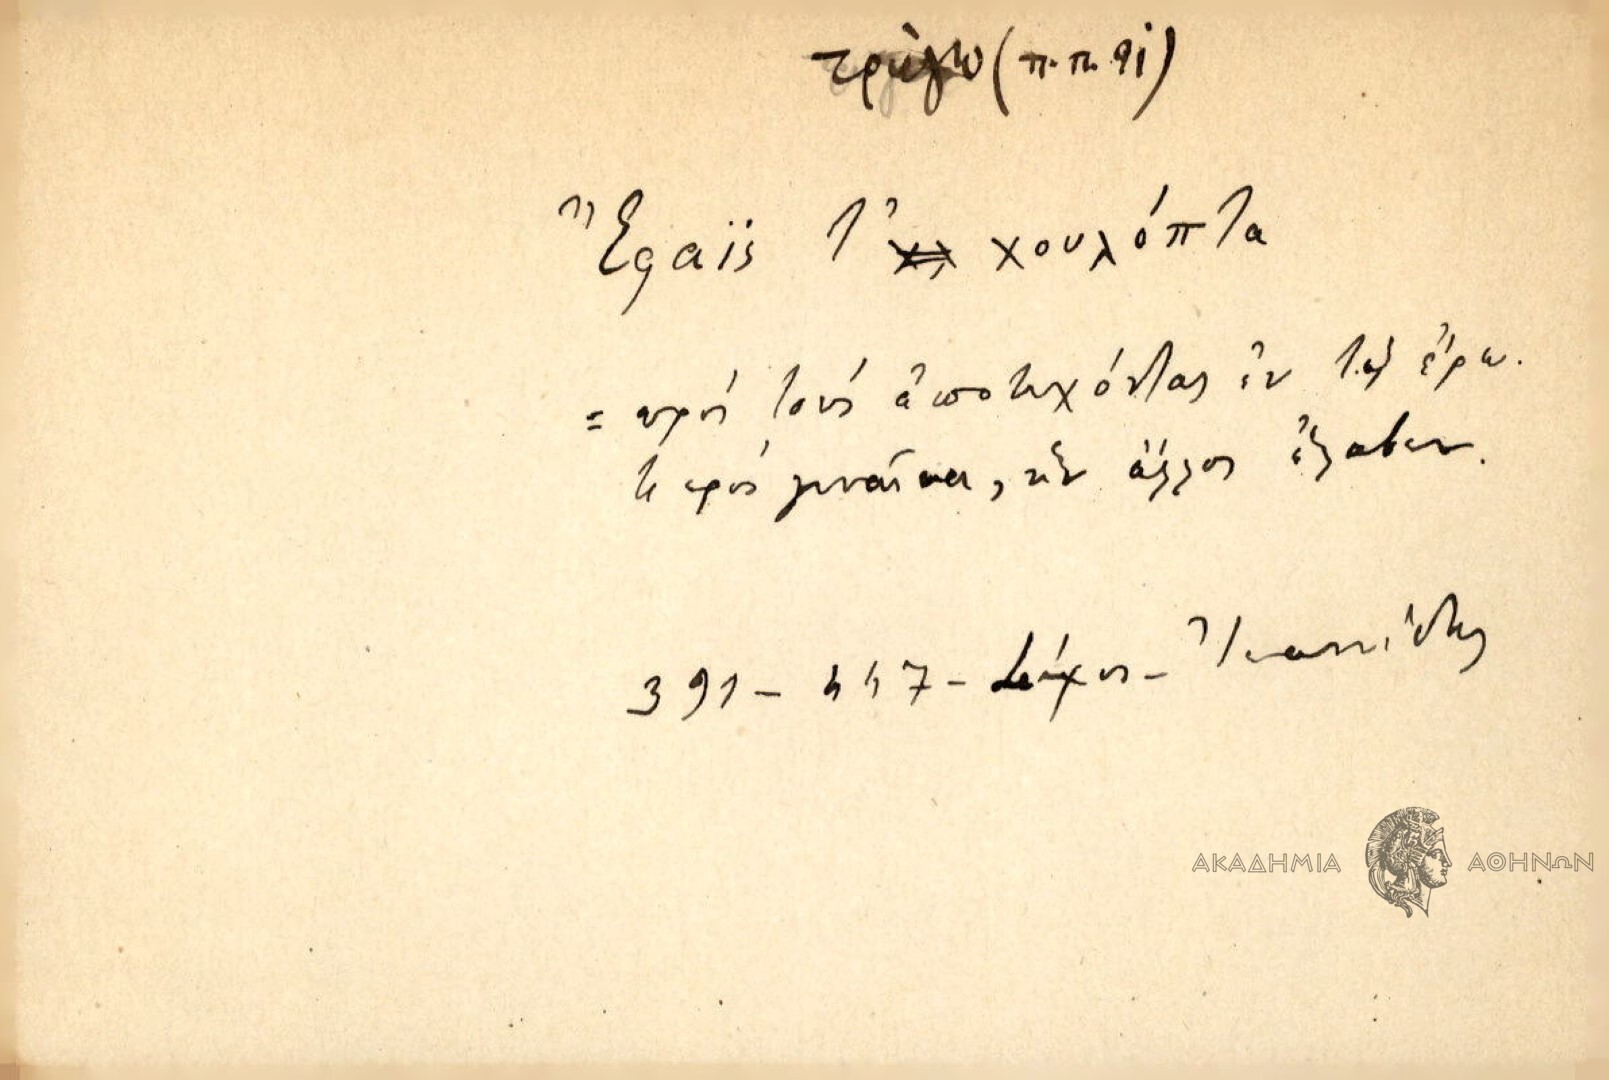 τρώγω (π.π. 91)
Ἔφαϊς τ' χουλόπτα
= πρὸς τοὺς ἀποτυχόντας ἐν τῷ ἔρω.
τι πρὸς γυναῖκα, ἣν ἄλλος ἔλαβεν.
391 - 447 - Ἰωαννίδης
ΑΚΑΔΗΜΙΑ ΑΘΗΝΩΝ